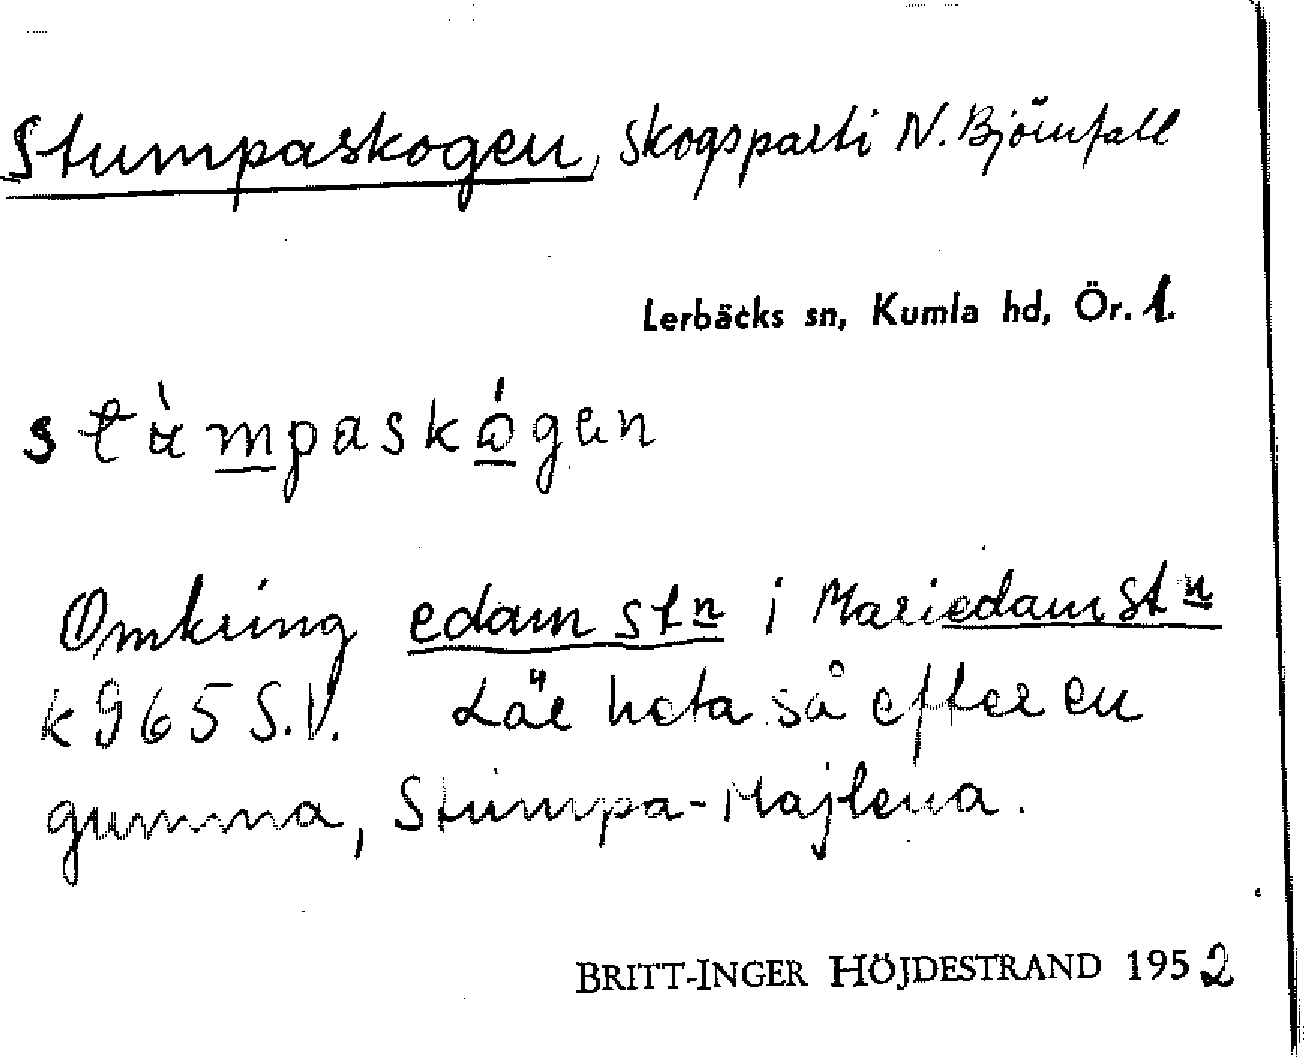 Stumpaskogen, skogsparti N. Björnfall
Lerbäcks sn, Kumla hd, Ör. l.
stùmpaskógen
Omkring edam stn i Mariedam stn
k 965 S.V. Lär heta så efter en
gumma, Stumpa-Majlena.
BRITT-INGER HÖJDESTRAND 1952